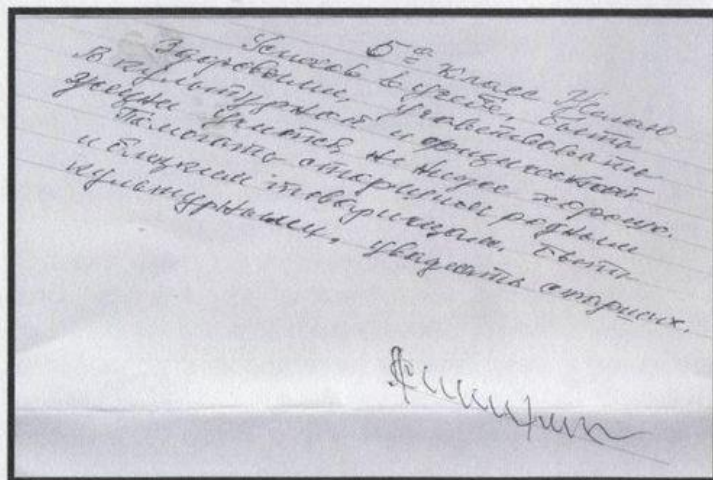 5ª класс Желаю
Успехов в учебе, быть
Здоровыми, учавствовать
в культурной и физической
жизни учится не ниже хорошо.
Помогать старшим родным
и близким товарищам. Быть
культурными, уважать старших.